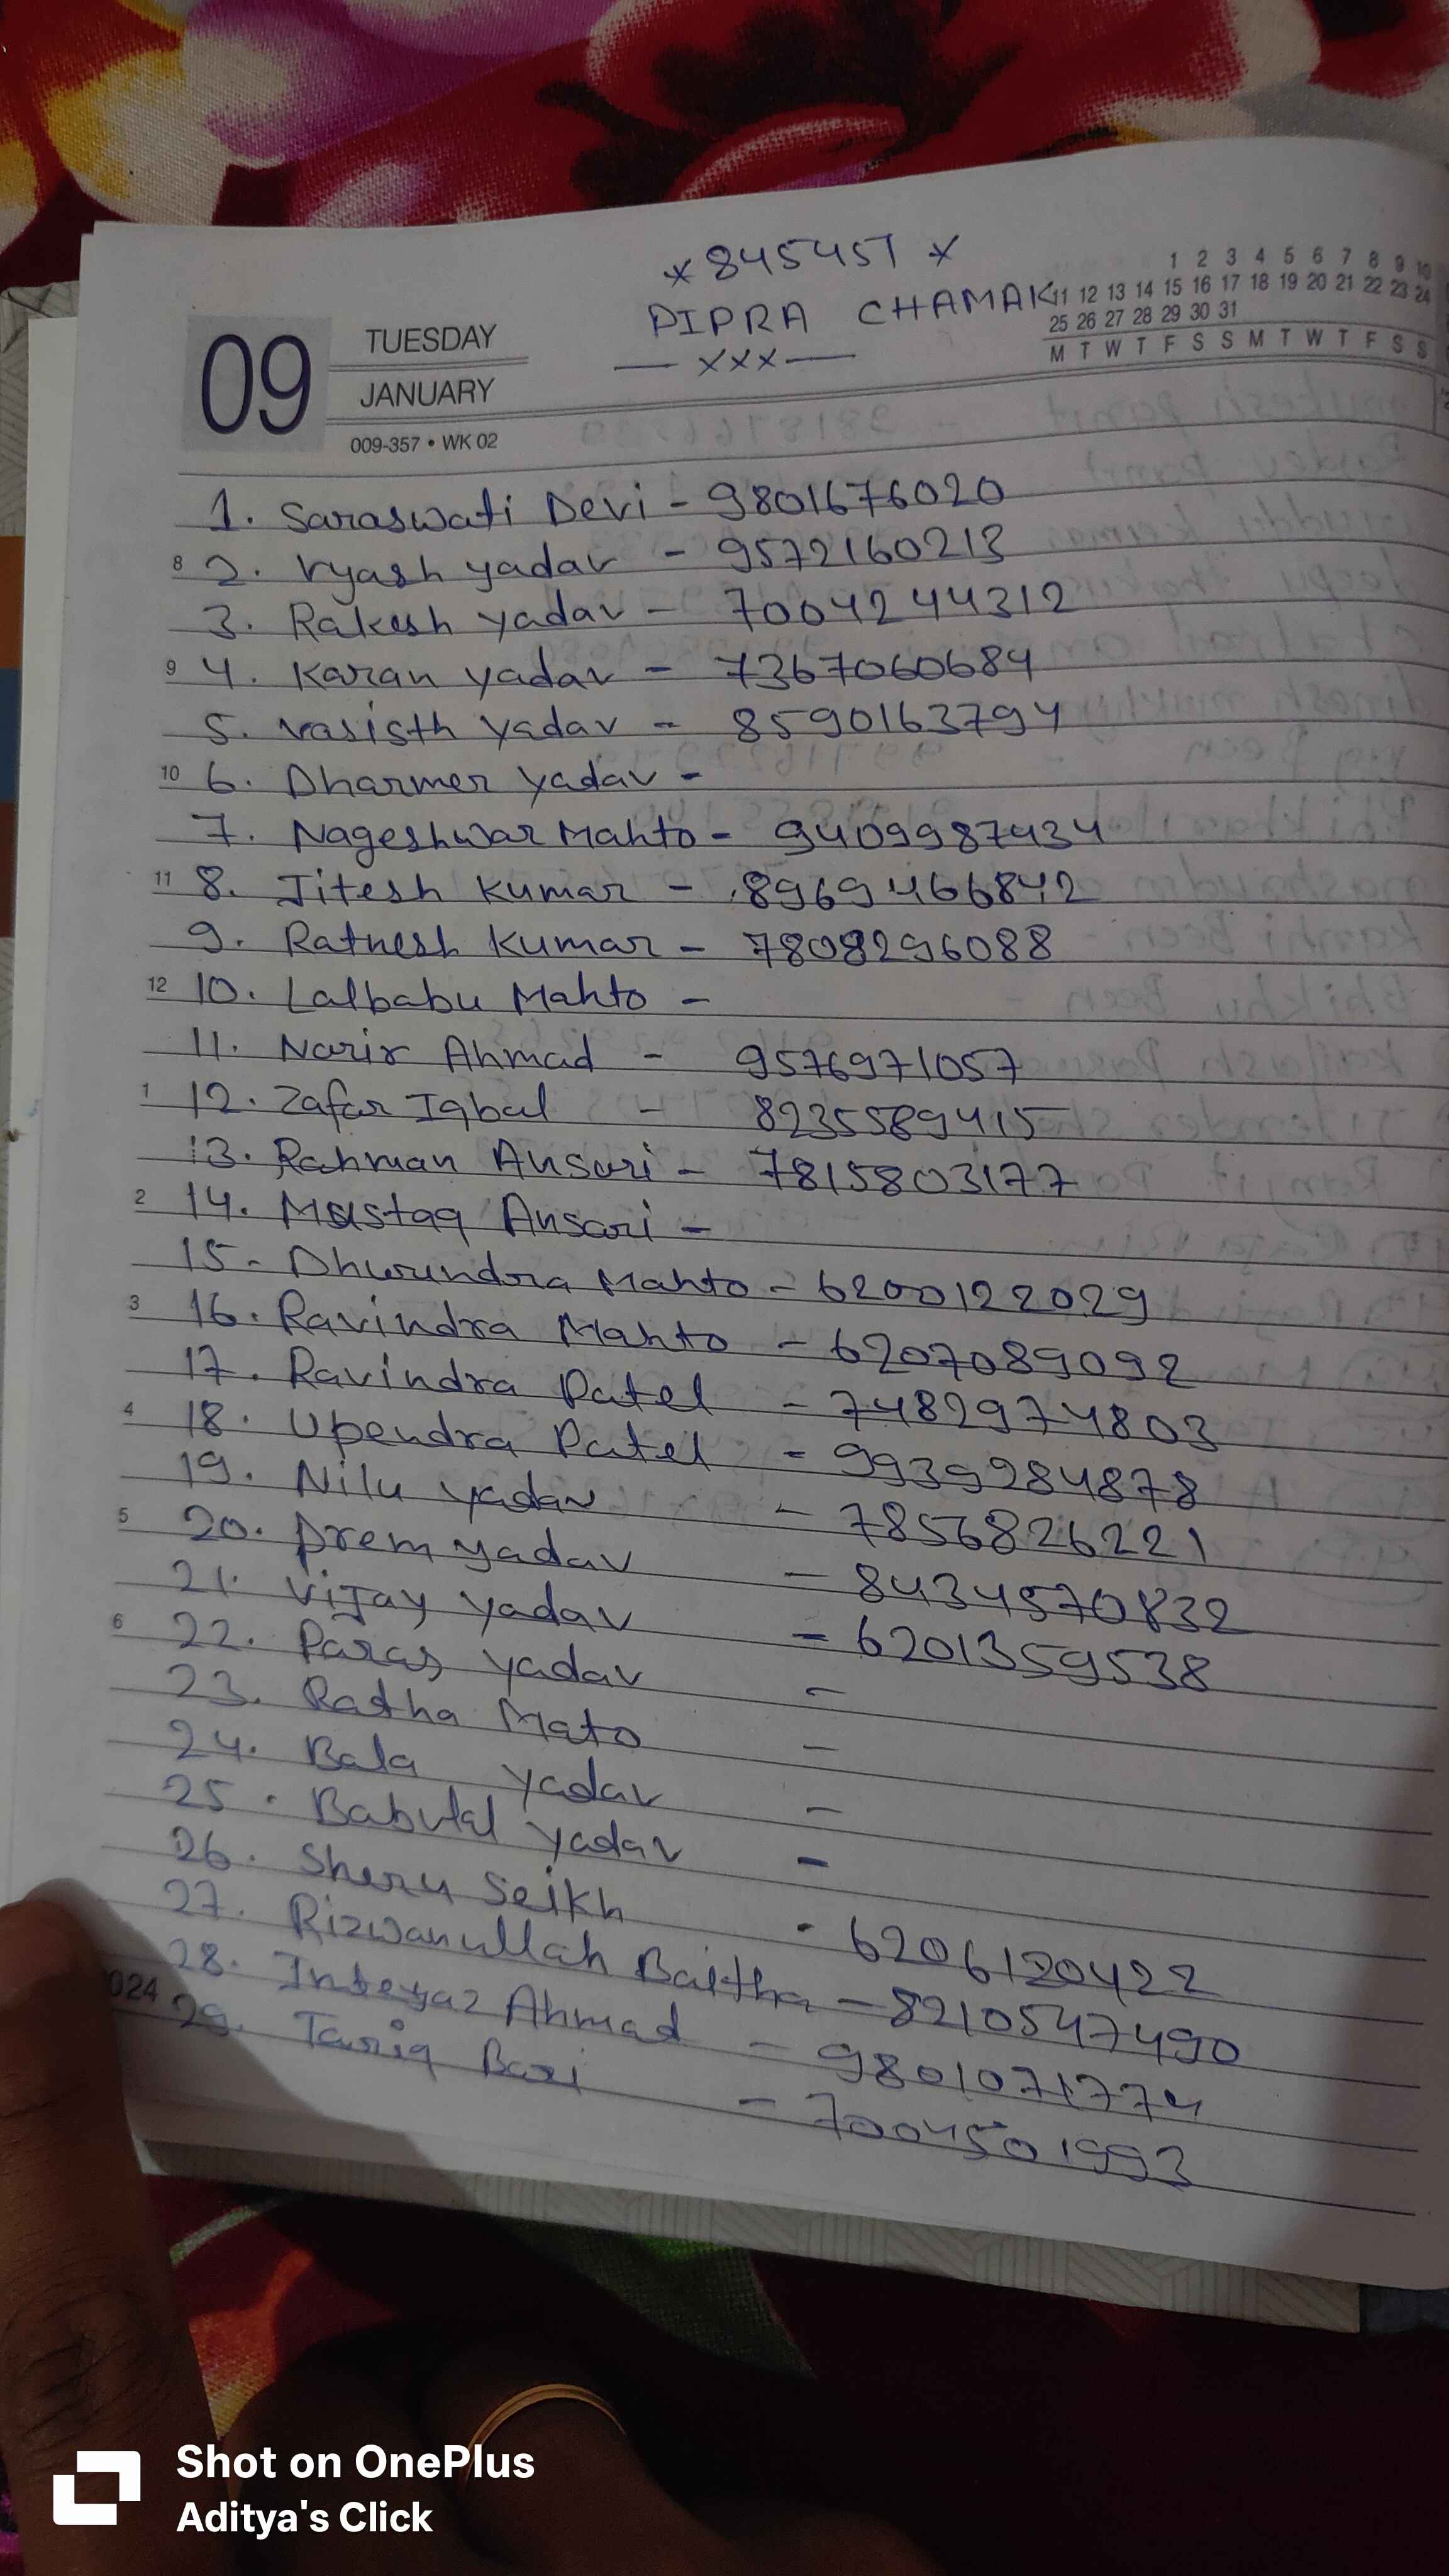 *845457*
PIPRA CHAMAK
— xxx —
1 2 3 4 5 6 7 8 9 10
11 12 13 14 15 16 17 18 19 20 21 22 23 24
25 26 27 28 29 30 31
M T W T F S S M T W T F S S
09
TUESDAY
JANUARY
009-357 • WK 02
1. Saraswati Devi - 9801676020
8 2. Vyash yadav - 9572160213
3. Rakesh yadav - 7004244312
9 4. Karan yadav - 7367060684
5. Vasisth yadav - 8590163794
10 6. Dharmer yadav -
7. Nageshwar Mahto - 9409987434
11 8. Jitesh Kumar - 8969466842
9. Ratnesh Kumar - 7808296088
12 10. Lalbabu Mahto -
11. Nazir Ahmad - 9576971057
1 12. Zafar Iqbal - 8235589415
13. Rahman Ansari - 7815803177
2 14. Mustaq Ansari -
15. Mahto - 6200122029
3 16. Ravindra Mahto - 6207089092
17. Ravindra Patel - 7482974803
4 18. Upendra Patel - 9939284878
19. Nilu yadav - 7856826221
5 20. prem yadav - 8434570832
21. Vijay yadav - 6201359538
6 22. Paras yadav -
23. Radha Mato -
24. Bala yadav -
25. Babulal yadav -
26. Sheru Seikh - 6206120422
27. Rizwanullah Baitha - 8210547490
28. Inteyaz Ahmad - 9801071774
29. Tariq Bari - 7004501993
024
Shot on OnePlus
Aditya's Click